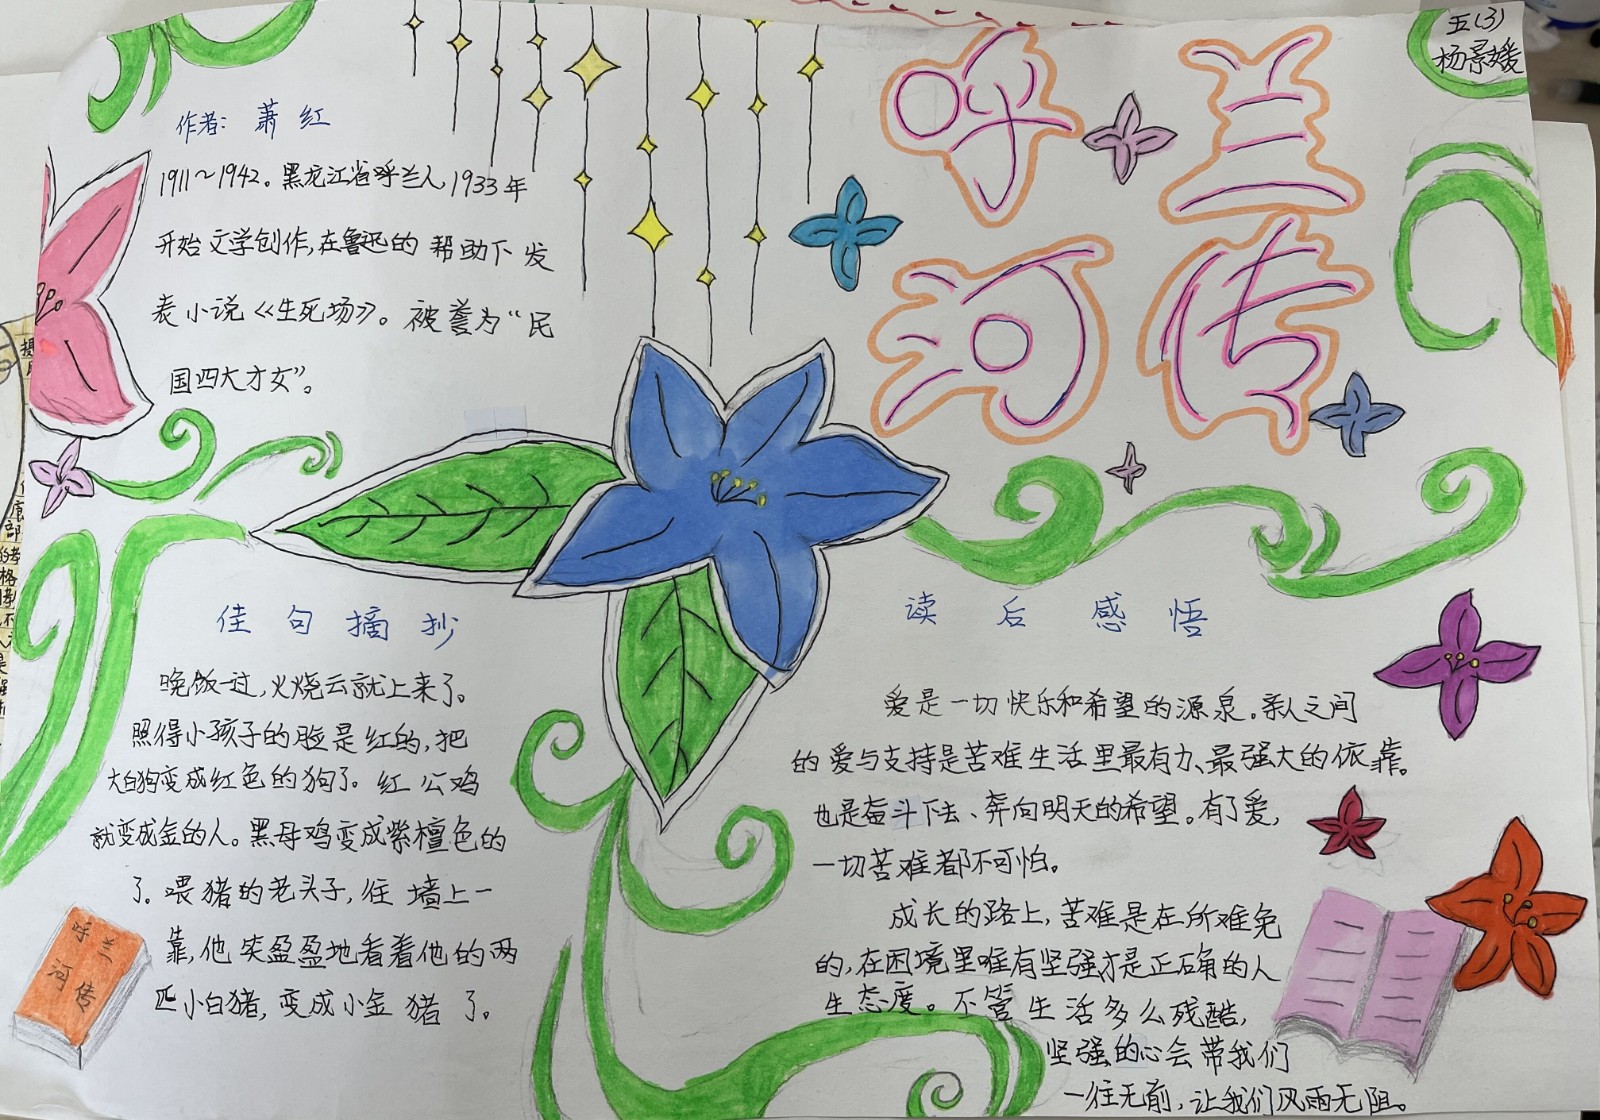 五(3)
杨景媛
呼兰
河传
作者：萧红
1911～1942。黑龙江省呼兰人，1933年
开始文学创作，在鲁迅的帮助下发
表小说《生死场》。被誉为“民
国四大才女”。
佳句摘抄
晚饭一过，火烧云就上来了。
照得小孩子的脸是红的，把
大白狗变成红色的狗了。红公鸡
就变成金的人。黑母鸡变成紫檀色的
了。喂猪的老头子，往墙上一
靠，他笑盈盈地看着他的两
匹小白猪，变成小金猪了。
呼兰
河传
读后感悟
爱是一切快乐和希望的源泉。亲人之间
的爱与支持是苦难生活里最有力、最强大的依靠。
也是奋斗下去、奔向明天的希望。有了爱，
一切苦难都不可怕。
成长的路上，苦难是在所难免
的，在困境里唯有坚强才是正确的人
生态度。不管生活多么残酷，
坚强的心会带我们
一往无前，让我们风雨无阻。